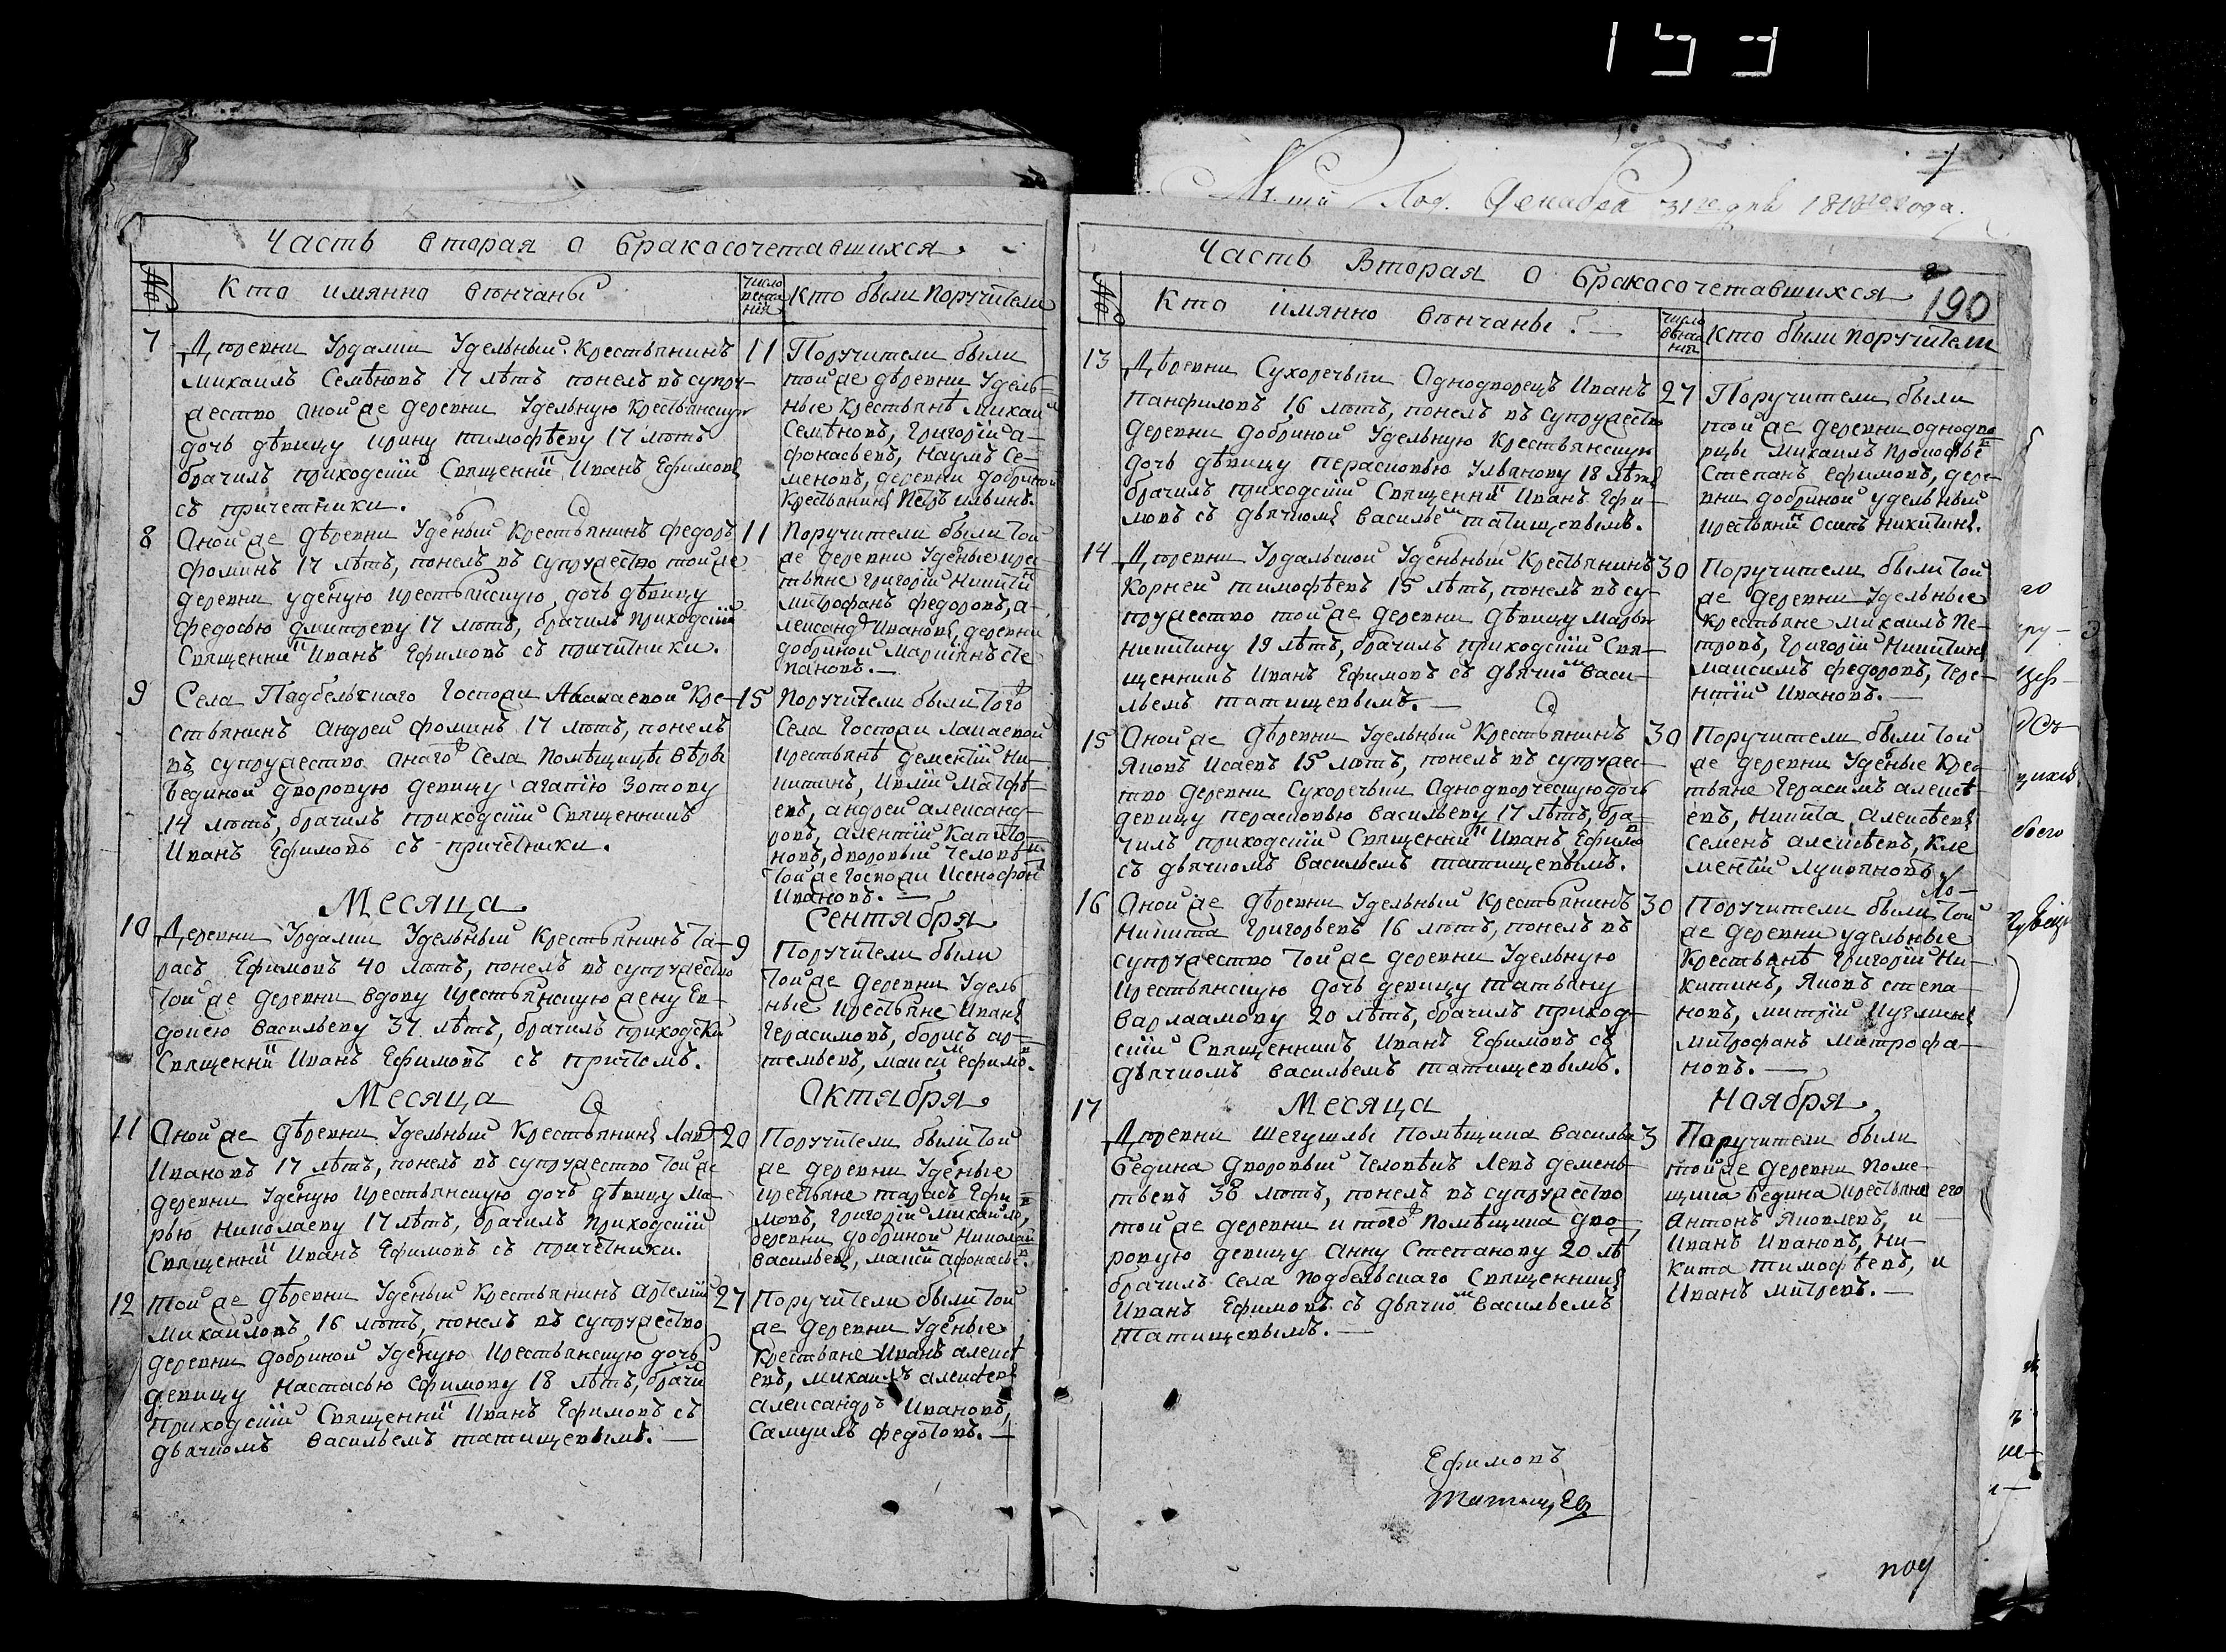 Часть вторая о бракасочетавшихся
№
Кто имянно венчаны
число венчания
Кто были поручители
7
Деревни Урдалии Удельный Крестьянинъ
михаилъ Семѣновъ 17 лѣтъ понелъ въ супру-
жество оной же деревни Удельную Крестьянскую
дочь дѣвицу ирину тимофѣеву 17 лѣтъ
брачилъ приходскій Священникъ Иванъ Ефимовъ
съ причетники.
11
Поручители были
той же дѣревни Удель-
ные Крестьянѣ михаил
Семѣновъ, Григорій а-
фонасьевъ, Наумъ Се-
меновъ, деревни добриной
Крестьянинъ Петръ ильинъ.
8
Оной же дѣревни Уденый Крестьянинъ федоръ
фоминъ 17 лѣтъ, понелъ въ супружество той же
деревни уденую крестьянскую дочь дѣвицу
федосью дмитреву 17 лѣтъ, брачилъ приходскій
Священникъ Иванъ Ефимовъ съ причетники.
11
Поручители были той
же деревни Уденые крес-
тьяне григорій Никитинъ
митрофанъ федоровъ, а-
лександръ Ивановъ, деревни
добриной Маркіянъ сте
пановъ.
9
Села Падбельскаго Госпожи
Кре-
стьянинъ андрей фоминъ 17 лѣтъ, понелъ
въ супружество онаго Села помѣщицы вѣры
бединой дворовую девицу агапію Зотову
14 лѣтъ, брачилъ приходскій Священникъ
Иванъ Ефимовъ съ причетники.
15
поручители были того
Села Госпожи
крестьянѣ дементій Ни-
китинъ,
Матфѣ-
евъ, андрей александ-
ровъ,
дворовый человѣкъ
той же госпожи Ксенофонтъ
Ивановъ.
Месяца
Сентября
10
Деревни Урдалии Удельный Крестьянинъ та-
расъ Ефимовъ 40 лѣтъ, понелъ въ супружество
той же деревни вдову крестьянскую жену Ев-
докею васильеву 37 лѣтъ, брачилъ приходски
Священникъ Иванъ Ефимовъ съ притомъ.
9
Поручители были
той же деревни Удель
ные крестьяне Иванъ
Герасимовъ, борисъ ар-
темьевъ, максимъ ефимовъ.
Месяца
Октября
11
Оной же дѣревни Удельный Крестьянинъ
Ивановъ 17 лѣтъ, понелъ въ супружество той же
деревни Уденую крестьянскую дочь дѣвицу ма-
рью николаеву 17 лѣтъ, брачилъ приходскій
Священникъ Иванъ Ефимовъ съ причетники.
20
Поручители были той
же деревни Уденые
крестьяне тарасъ Ефи-
мовъ, григорій михайловъ,
деревни добриной Николай
васильевъ, максимъ афонасьевъ.
12
той же дѣревни Уденый Крестьянинъ артемій
михайловъ 16 лѣтъ, понелъ въ супружество
деревни добриной Уденую Крестьянскую дочь
девицу настасью ефимову 18 лѣтъ, брачилъ
приходскій Священникъ Иванъ Ефимовъ съ
дьячкомъ васильемъ татищевымъ.
27
Поручители были той
же деревни Уденые
Крестьяне Иванъ алексѣ
евъ, михаилъ алексѣевъ
александръ Ивановъ,
Самуилъ федотовъ.
Часть Вторая о бракосочетавшихся
190
№
Кто имянно венчаны
число венчания
Кто были поручители
13
Деревни Сухоречьки Однодворецъ Иванъ
Панфиловъ 16 лѣтъ, понелъ въ супружество
деревни добриной Удельную Крестьянскую
дочь дѣвицу перасковью Ульянову 18 лѣтъ
брачилъ приходскій Священникъ Иванъ Ефи-
мовъ съ дьячкомъ васильемъ татищевымъ.
27
Поручители были
той же деревни однодво
рцы михаилъ прокофьевъ
Степанъ ефимовъ, дере-
вни добриной удельный
крестьянинъ Осипъ никитинъ.
14
Деревни Урдальской Уденьный Крестьянинъ
Корней тимофѣевъ 15 лѣтъ, понелъ въ су-
пружество той же деревни дѣвицу марью
никитину 19 лѣтъ, брачилъ приходскій Свя-
щенникъ Иванъ Ефимовъ съ дьячкомъ васи-
льемъ татищевымъ.
30
Поручители были той
же деревни Удельные
Крестьяне михаилъ пе-
тровъ, григорій никитинъ
максимъ федоровъ, тере-
нтій Ивановъ.
15
Оной же дѣревни Удельный Крестьянинъ
Яковъ Исаевъ 15 лѣтъ, понелъ въ супружес-
тво деревни Сухоречьки Однодворческую дочь
девицу перасковью васильеву 17 лѣтъ, бра-
чилъ приходскій Священникъ Иванъ Ефимовъ
съ дьячкомъ васильемъ татищевымъ.
30
Поручители были той
же деревни Уденые Крес
тьяне герасимъ алексѣ-
евъ, никита алексѣевъ
Семенъ алексѣевъ, Кле
ментій Лукьяновъ
16
Оной же дѣревни Удельный Крестьянинъ
никита григорьевъ 16 лѣтъ, понелъ въ
супружество той же деревни Удельную
крестьянскую дочь девицу татьяну
варлаамову 20 лѣтъ, брачилъ приход-
скій Священникъ Иванъ Ефимовъ съ
дьячкомъ васильемъ татищевымъ.
30
Поручители были той
же деревни удельные
Крестьянѣ григорій ни-
китинъ, Яковъ степа-
новъ, митрій
митрофанъ митрофа-
новъ.
Месяца
Ноября
17
Деревни Шегушлы Помѣщика василья
бедина дворовый человѣкъ левъ демень-
тьевъ 38 лѣтъ, понелъ въ супружество
той же деревни и того помѣщика дво-
ровую девицу анну Степанову 20 лѣ
брачилъ Села подбельскаго Священникъ
Иванъ Ефимовъ съ дьячкомъ васильемъ
татищевымъ.
3
Поручители были
той же деревни поме-
щика бедина крестьяне его
антонъ Яковлевъ, и
Иванъ Ивановъ, ни-
кита тимофѣевъ, и
Иванъ митревъ.
Ефимовъ